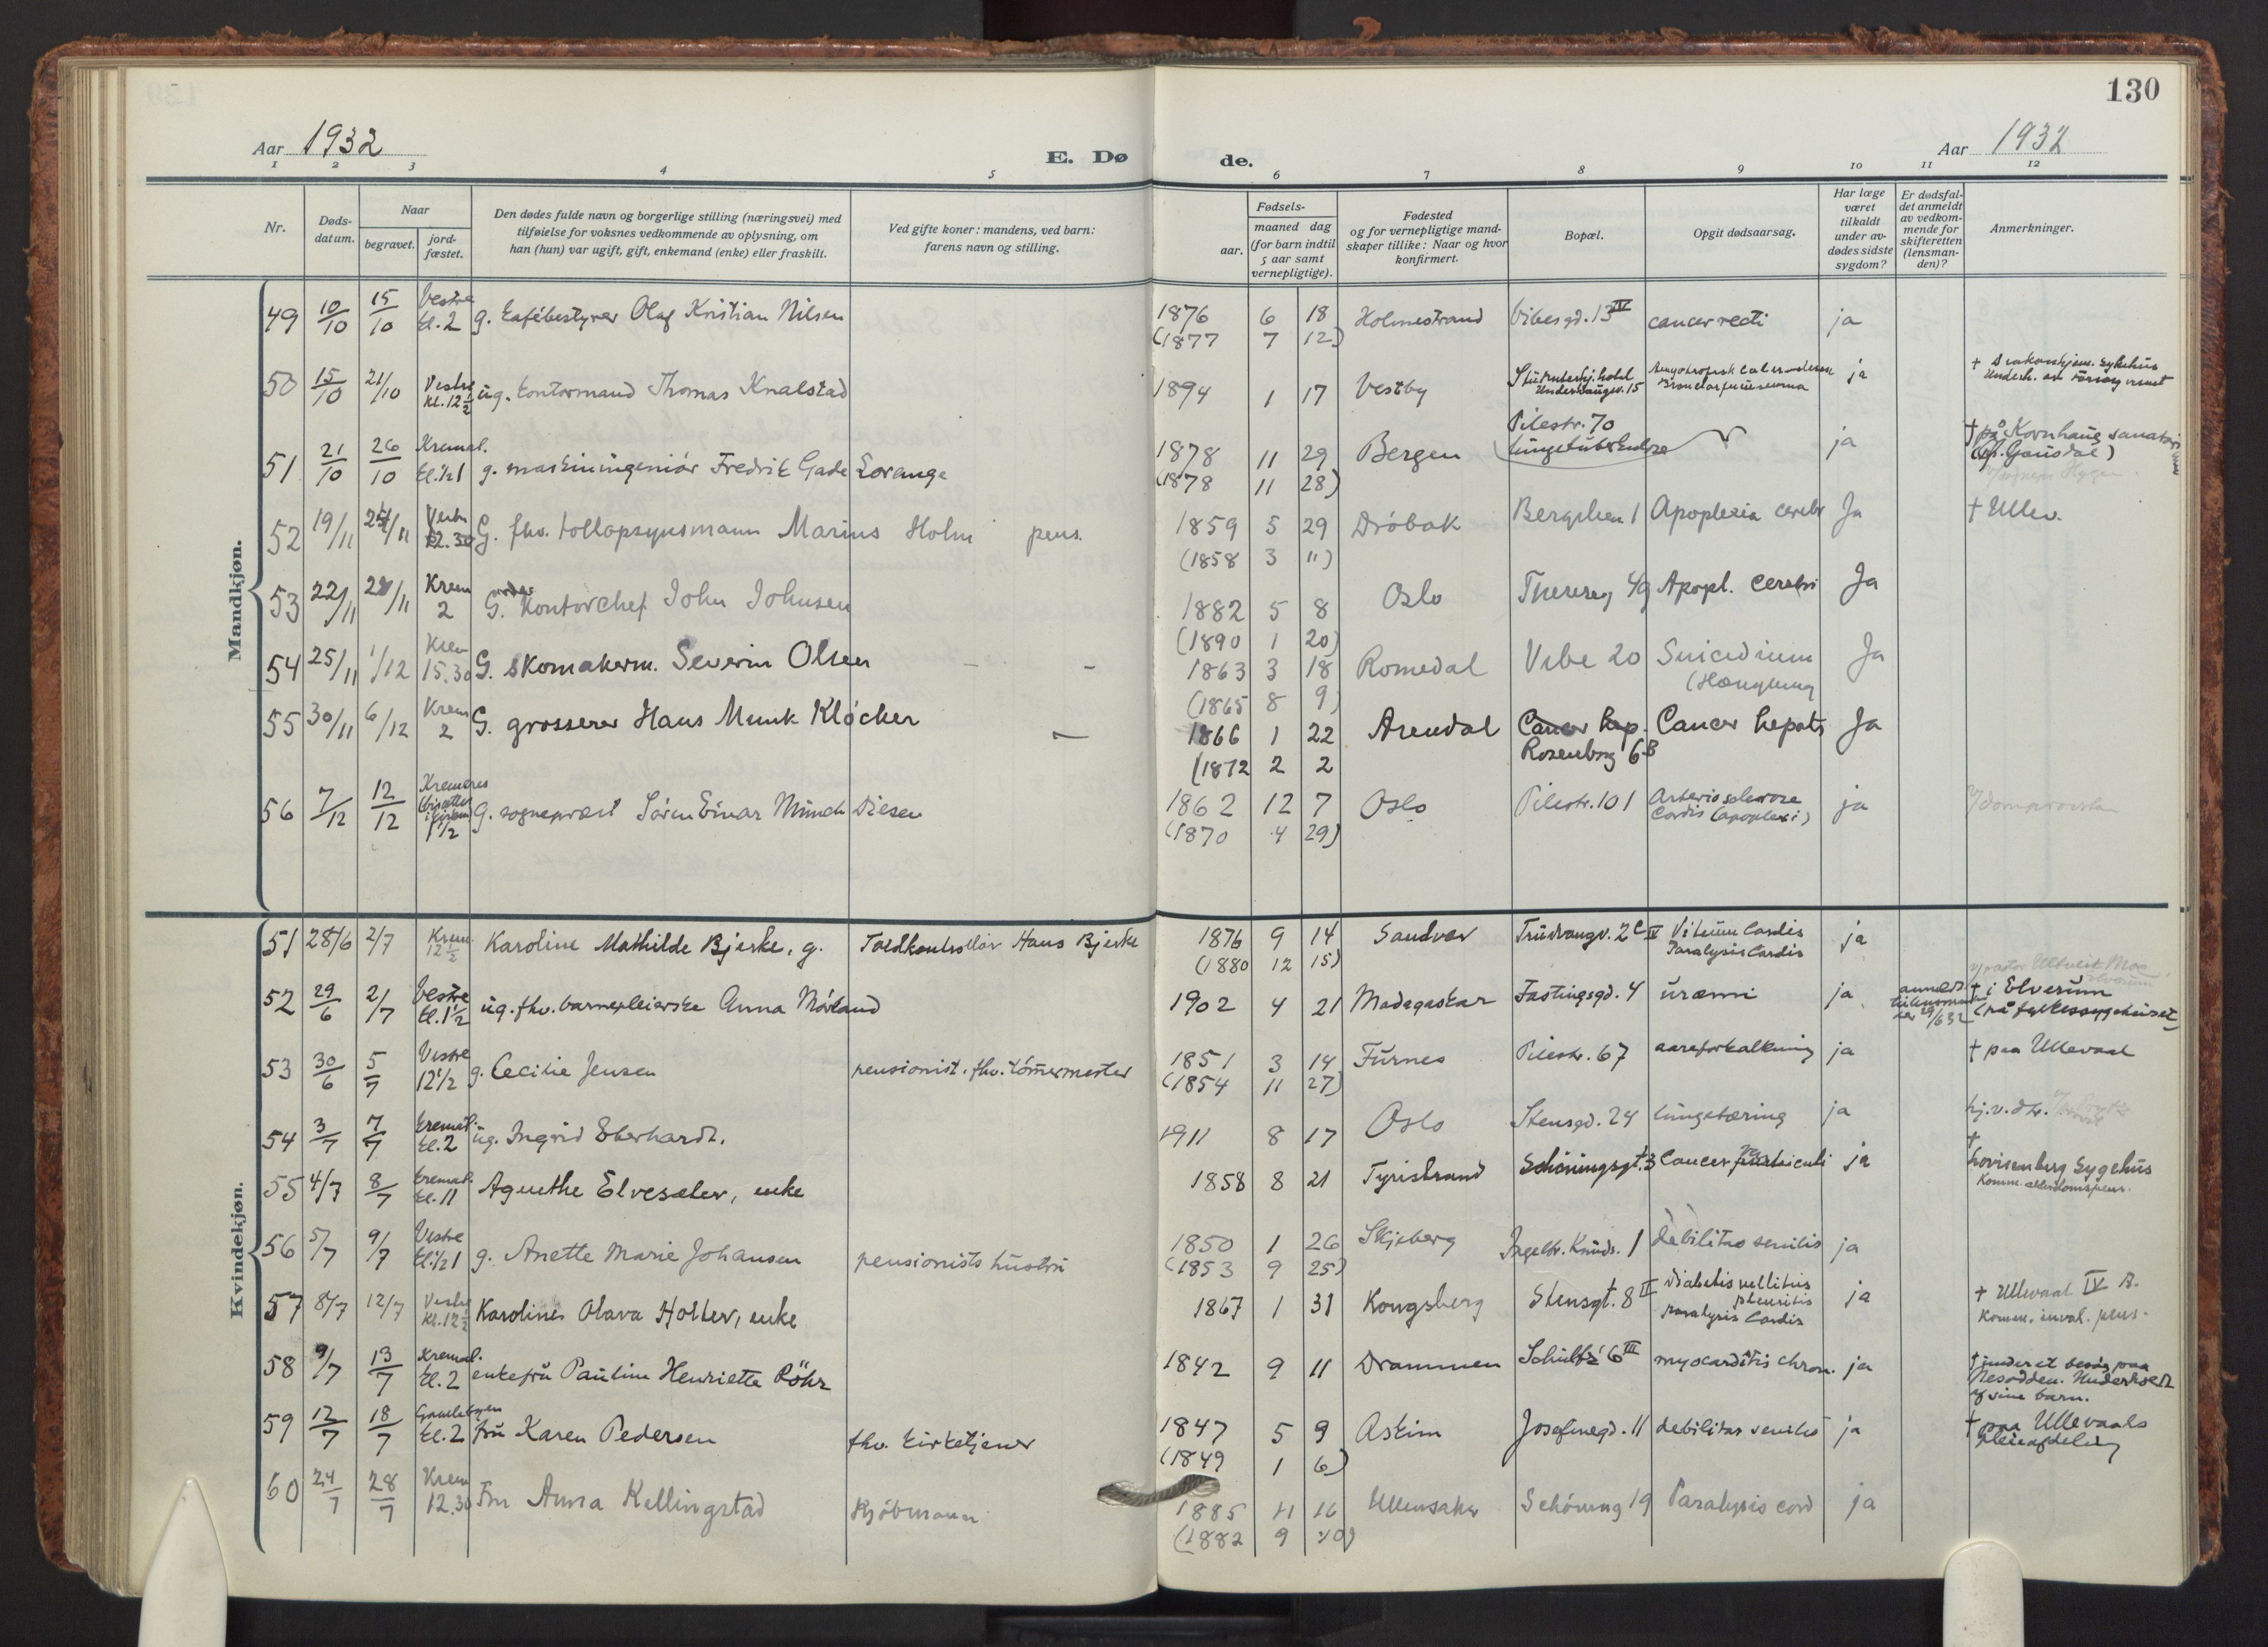 130
Aar 1932
E. Dø de.
Aar 1932
1 2 3 4 5 6 7 8 9 10 11 12
Nr.
Døds-
datum.
Naar
begravet.
jord-
fæstet.
Den dødes fulde navn og borgerlige stilling (næringsvei) med
tilføielse for voksnes vedkommende av oplysning, om
han (hun) var ugift, gift, enkemand (enke) eller fraskilt.
Ved gifte koner: mandens, ved barn:
farens navn og stilling.
Fødsels-
aar.
maaned dag
(for barn indtil
5 aar samt
vernepligtige).
Fødested
og for vernepligtige mand-
skaper tillike: Naar og hvor
konfirmert.
Bopæl.
Opgit dødsaarsag.
Har læge
været
tilkaldt
under av-
dødes sidste
sygdom?
Er dødsfal-
det anmeldt
av vedkom-
mende for
skifteretten
(lensman-
den)?
Anmerkninger.
Mandkjøn.
49 10/10 15/10 Vestre kl. 2 g. kafébestyrer Olaf Kristian Nilsen 1876 6 18 Holmestrand Vibesgd. 13 IV cancer recti ja
(1877 7 12)
50 15/10 21/10 Vestre kl. 12½ ug. kontormand Thomas Knalstad 1894 1 17 Vestby Studenterhj. hotel Underhaugsv. 15 ja
51 21/10 26/10 Kremat. kl. ½1 g. maskiningeniør Fredrik Gade Lorange 1878 11 29 Bergen Pilestr. 70 lungetuberkulose ja † på Kornhaug sanatori (Gausdal)
(1878 11 28)
52 19/11 /11 12.30 G. fhv. tollopsynsmann Marius Holm pens. 1859 5 29 Drøbak Apoplexia cerebr Ja † Ullev.
(1858 3 11)
53 22/11 /11 Krem 2 G. Kontorchef John Johnsen 1882 5 8 Oslo Apopl. cerebri Ja
(1890 1 20)
54 25/11 1/12 Krem 15.30 G. skomakerm. Severin Olsen - - 1863 3 18 Romedal Vibe 20 Suicidium Ja
(1865 8 9)
55 30/11 6/12 Krem 2 G. grosserer Hans Munk Kløcker - 1866 1 22 Arendal Cancer hep. Rosenborg 6B Cancer hepatis Ja
(1872 2 2
56 7/12 12/12 g. sogneprest Søren Einar Munch Diesen 1862 12 7 Oslo Pilestr. 101 Arteriosclerose Cordis (apoplexi) ja
(1870 4 29)
Kvindekjøn.
51 28/6 2/7 Krem. 12½ Karoline Mathilde Bjerke, g. Toldkontrollør Hans Bjerke 1876 9 14 Sandvær Trudvangv. 2C IV Vitium Cordis Paralysis Cordis ja
(1880 12 15)
52 29/6 2/7 Vestre kl. 1½ ug. fhv. barnepleierske Anna Mørland 1902 4 21 Madagaskar Fastingsgd. 4 uræmi ja † i Elverum (på fylkessygehuset
53 30/6 5/7 Vestre 12½ g. Cecilie Jensen pensionist. fhv. tømmermester 1851 3 14 Furnes Pilestr. 67 aareforkalkning ja † paa Ullevaal
(1854 11 27)
54 3/7 7/7 kremat. kl. 2 ug. Ingrid Eberhardt. 1911 8 17 Oslo Stensgd. 24 lungetæring ja
55 4/7 8/7 kremat. kl. 11 Agnethe Elvesæter, enke 1858 8 21 Tyristrand Schøningsgt. 3 Cancer ja † Lovisenberg Sygehus Komm. alderdomspens.
56 5/7 9/7 Vestre kl. ½1 g. Anette Marie Johansen pensionists hustru 1850 1 26 Skjeberg Ingebr. Knuds. 1 debilitas senilis ja
(1853 9 25)
57 8/7 12/7 Vestre kl. 12½ Karolines Olava Holter, enke 1867 1 31 Kongsberg Stensgt. 8 II Diabetis mellitus pleuritis paralysis Cordis ja † Ullevaal IV A. Komm. inval. pens.
58 9/7 13/7 Kremat. kl. 2 enkefru Pauline Henriette Röhr 1842 9 11 Drammen Schultz' 6 III myocarditis chron. ja † under et besøg paa Nesodden. Underholdt af sine barn.
59 12/7 18/7 Gamlebyen kl. 2 fru Karen Pedersen fhv. kirketjener 1847 5 9 Askim Josefinegd. 11 debilitas senilis ja † paa Ullevaals pleieafdeling
(1849 1 6)
60 24/7 28/7 Krem 12.30 Fru Anna Kellingstad Kjøbmann 1885 11 16 Ullensaker Schøning 19 Paralysis cord ja
(1882 9 20)